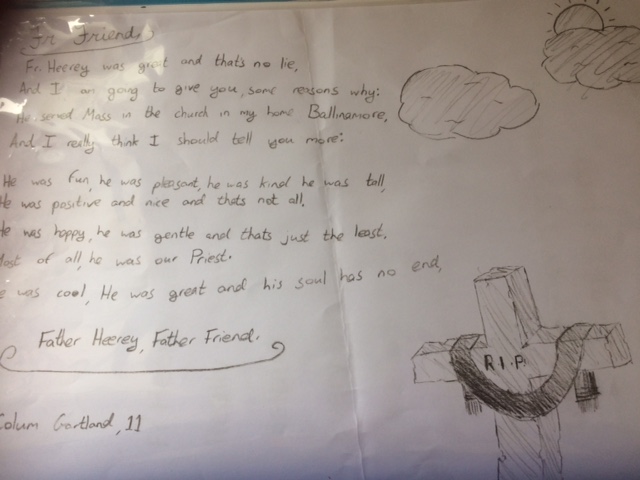 Fr Friend,
Fr. Heerey was great and thats no lie,
And I am going to give you, some reasons why:
He served Mass in the church in my home Ballinamore,
And I really think I should tell you more:
He was fun, he was pleasant, he was kind he was tall,
He was positive and nice and thats not all,
He was happy, he was gentle and thats just the least,
Most of all, he was our Priest.
He was cool, He was great and his soul has no end,
Father Heerey, Father Friend.
R.I.P
Colum Gartland, 11